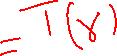 = T(γ)